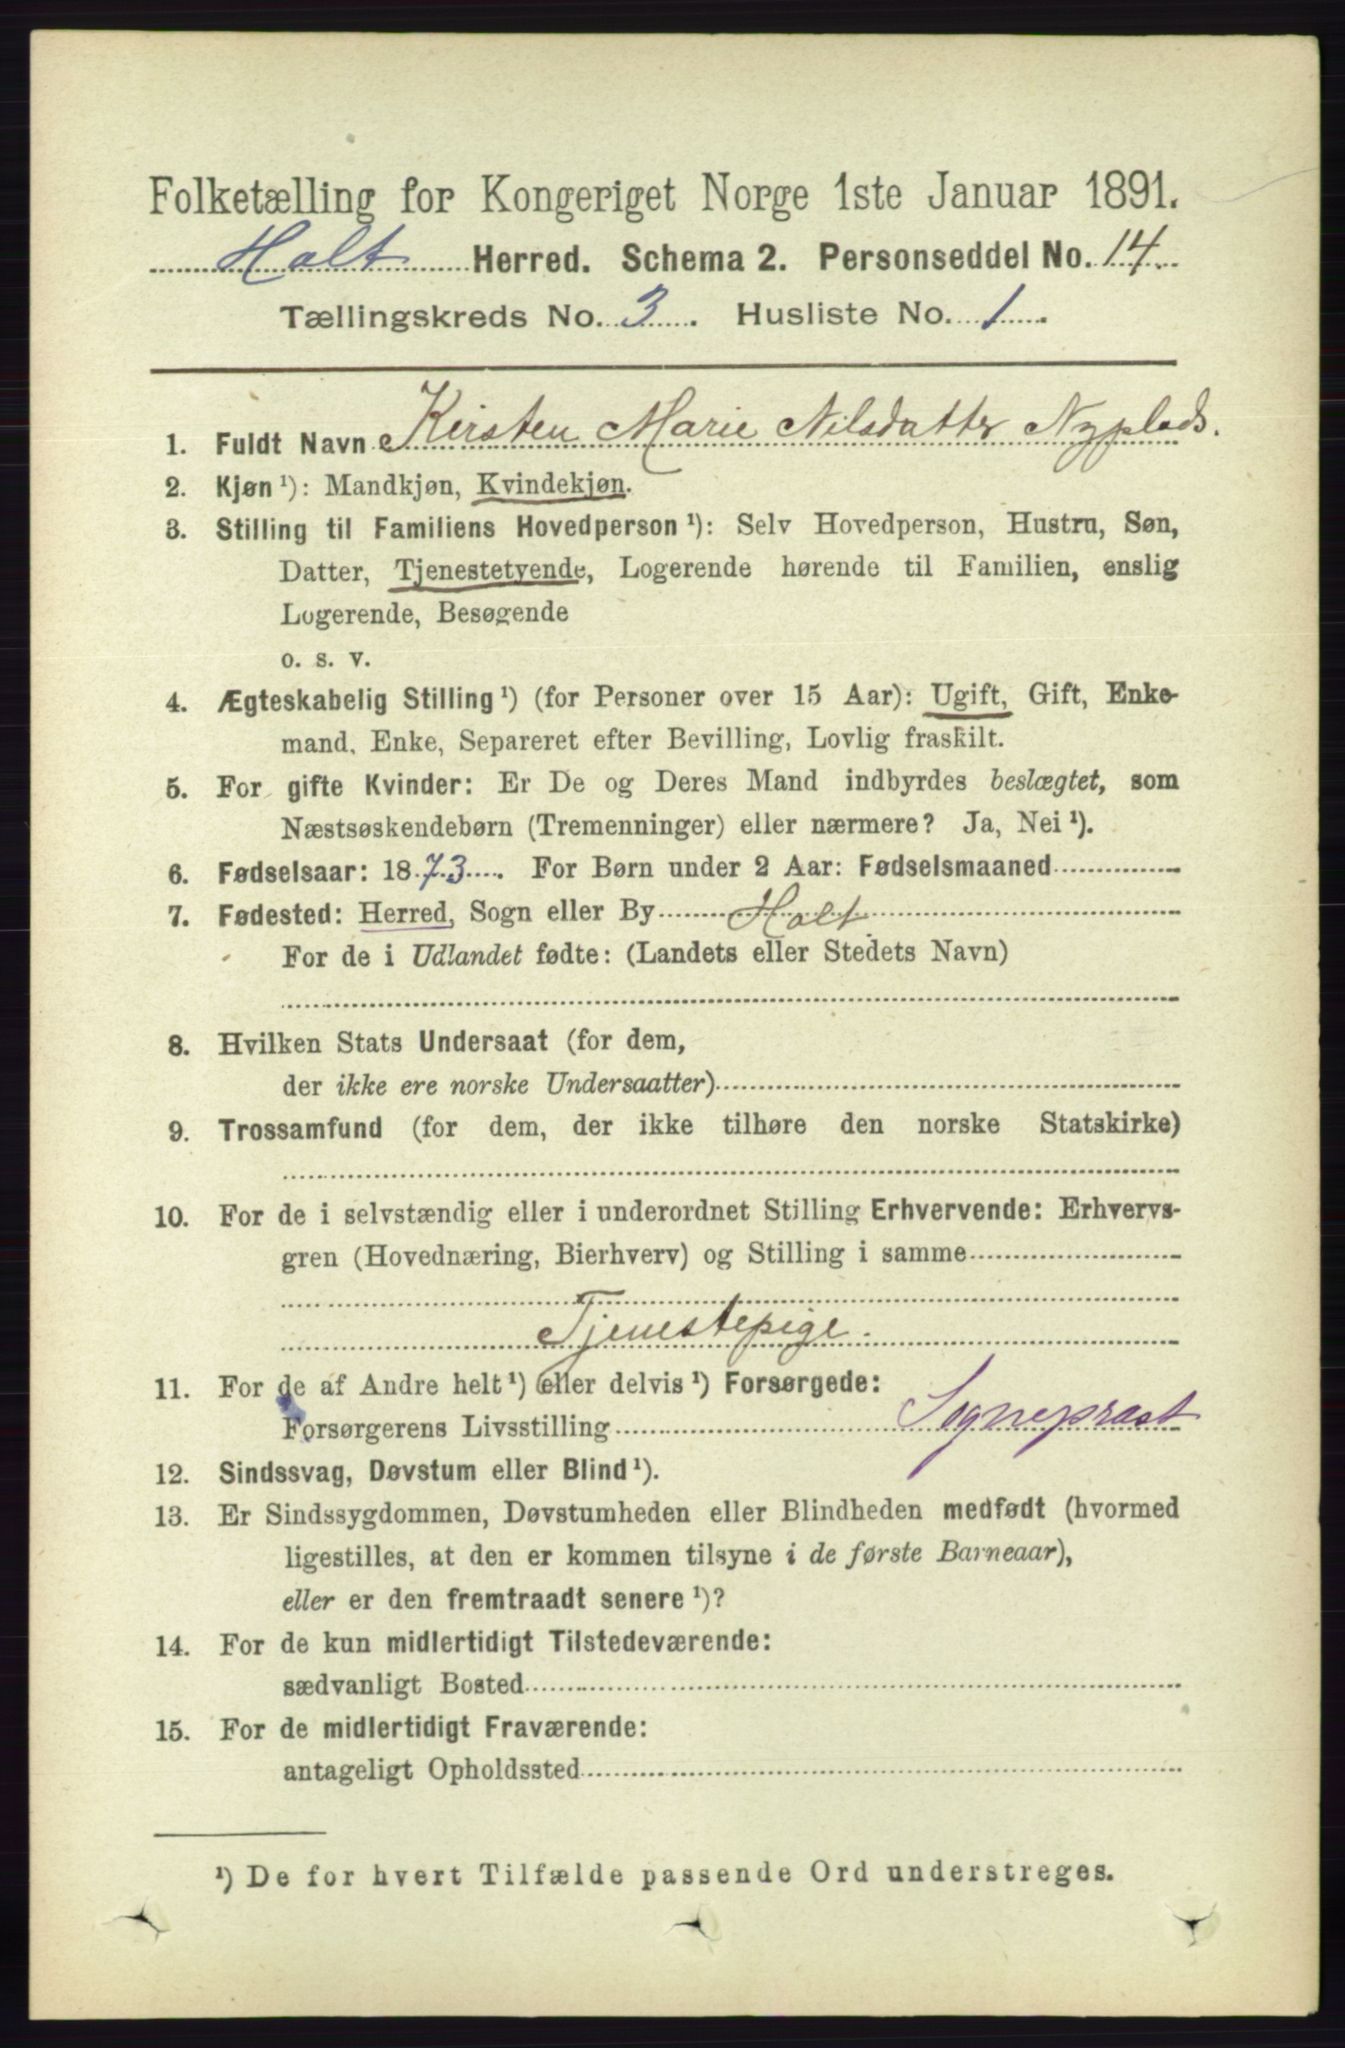 Folketælling for Kongeriget Norge 1ste Januar 1891.
Holt Herred. Schema 2. Personseddel No. 14.
Tællingskreds No. 3. Husliste No. 1.
1. Fuldt Navn Kirsten Marie Nilsdatter Nyplads.
2. Kjøn ¹): Mandkjøn, Kvindekjøn.
3. Stilling til Familiens Hovedperson ¹): Selv Hovedperson, Hustru, Søn,
Datter, Tjenestetyende, Logerende hørende til Familien, enslig
Logerende, Besøgende
o. s. v.
4. Ægteskabelig Stilling ¹) (for Personer over 15 Aar): Ugift, Gift, Enke-
mand, Enke, Separeret efter Bevilling, Lovlig fraskilt.
5. For gifte Kvinder: Er De og Deres Mand indbyrdes beslægtet, som
Næstsøskendebørn (Tremenninger) eller nærmere? Ja, Nei ¹).
6. Fødselsaar: 1873. For Børn under 2 Aar: Fødselsmaaned
7. Fødested: Herred, Sogn eller By Holt
For de i Udlandet fødte: (Landets eller Stedets Navn)
8. Hvilken Stats Undersaat (for dem,
der ikke ere norske Undersaatter)
9. Trossamfund (for dem, der ikke tilhøre den norske Statskirke)
10. For de i selvstændig eller i underordnet Stilling Erhvervende: Erhvervs-
gren (Hovednæring, Bierhverv) og Stilling i samme
Tjenestepige.
11. For de af Andre helt ¹) eller delvis ¹) Forsørgede:
Forsørgerens Livsstilling Sogneprast
12. Sindssvag, Døvstum eller Blind ¹).
13. Er Sindssygdommen, Døvstumheden eller Blindheden medfødt (hvormed
ligestilles, at den er kommen tilsyne i de første Barneaar),
eller er den fremtraadt senere ¹)?
14. For de kun midlertidigt Tilstedeværende:
sædvanligt Bosted
15. For de midlertidigt Fraværende:
antageligt Opholdssted
¹) De for hvert Tilfælde passende Ord understreges.